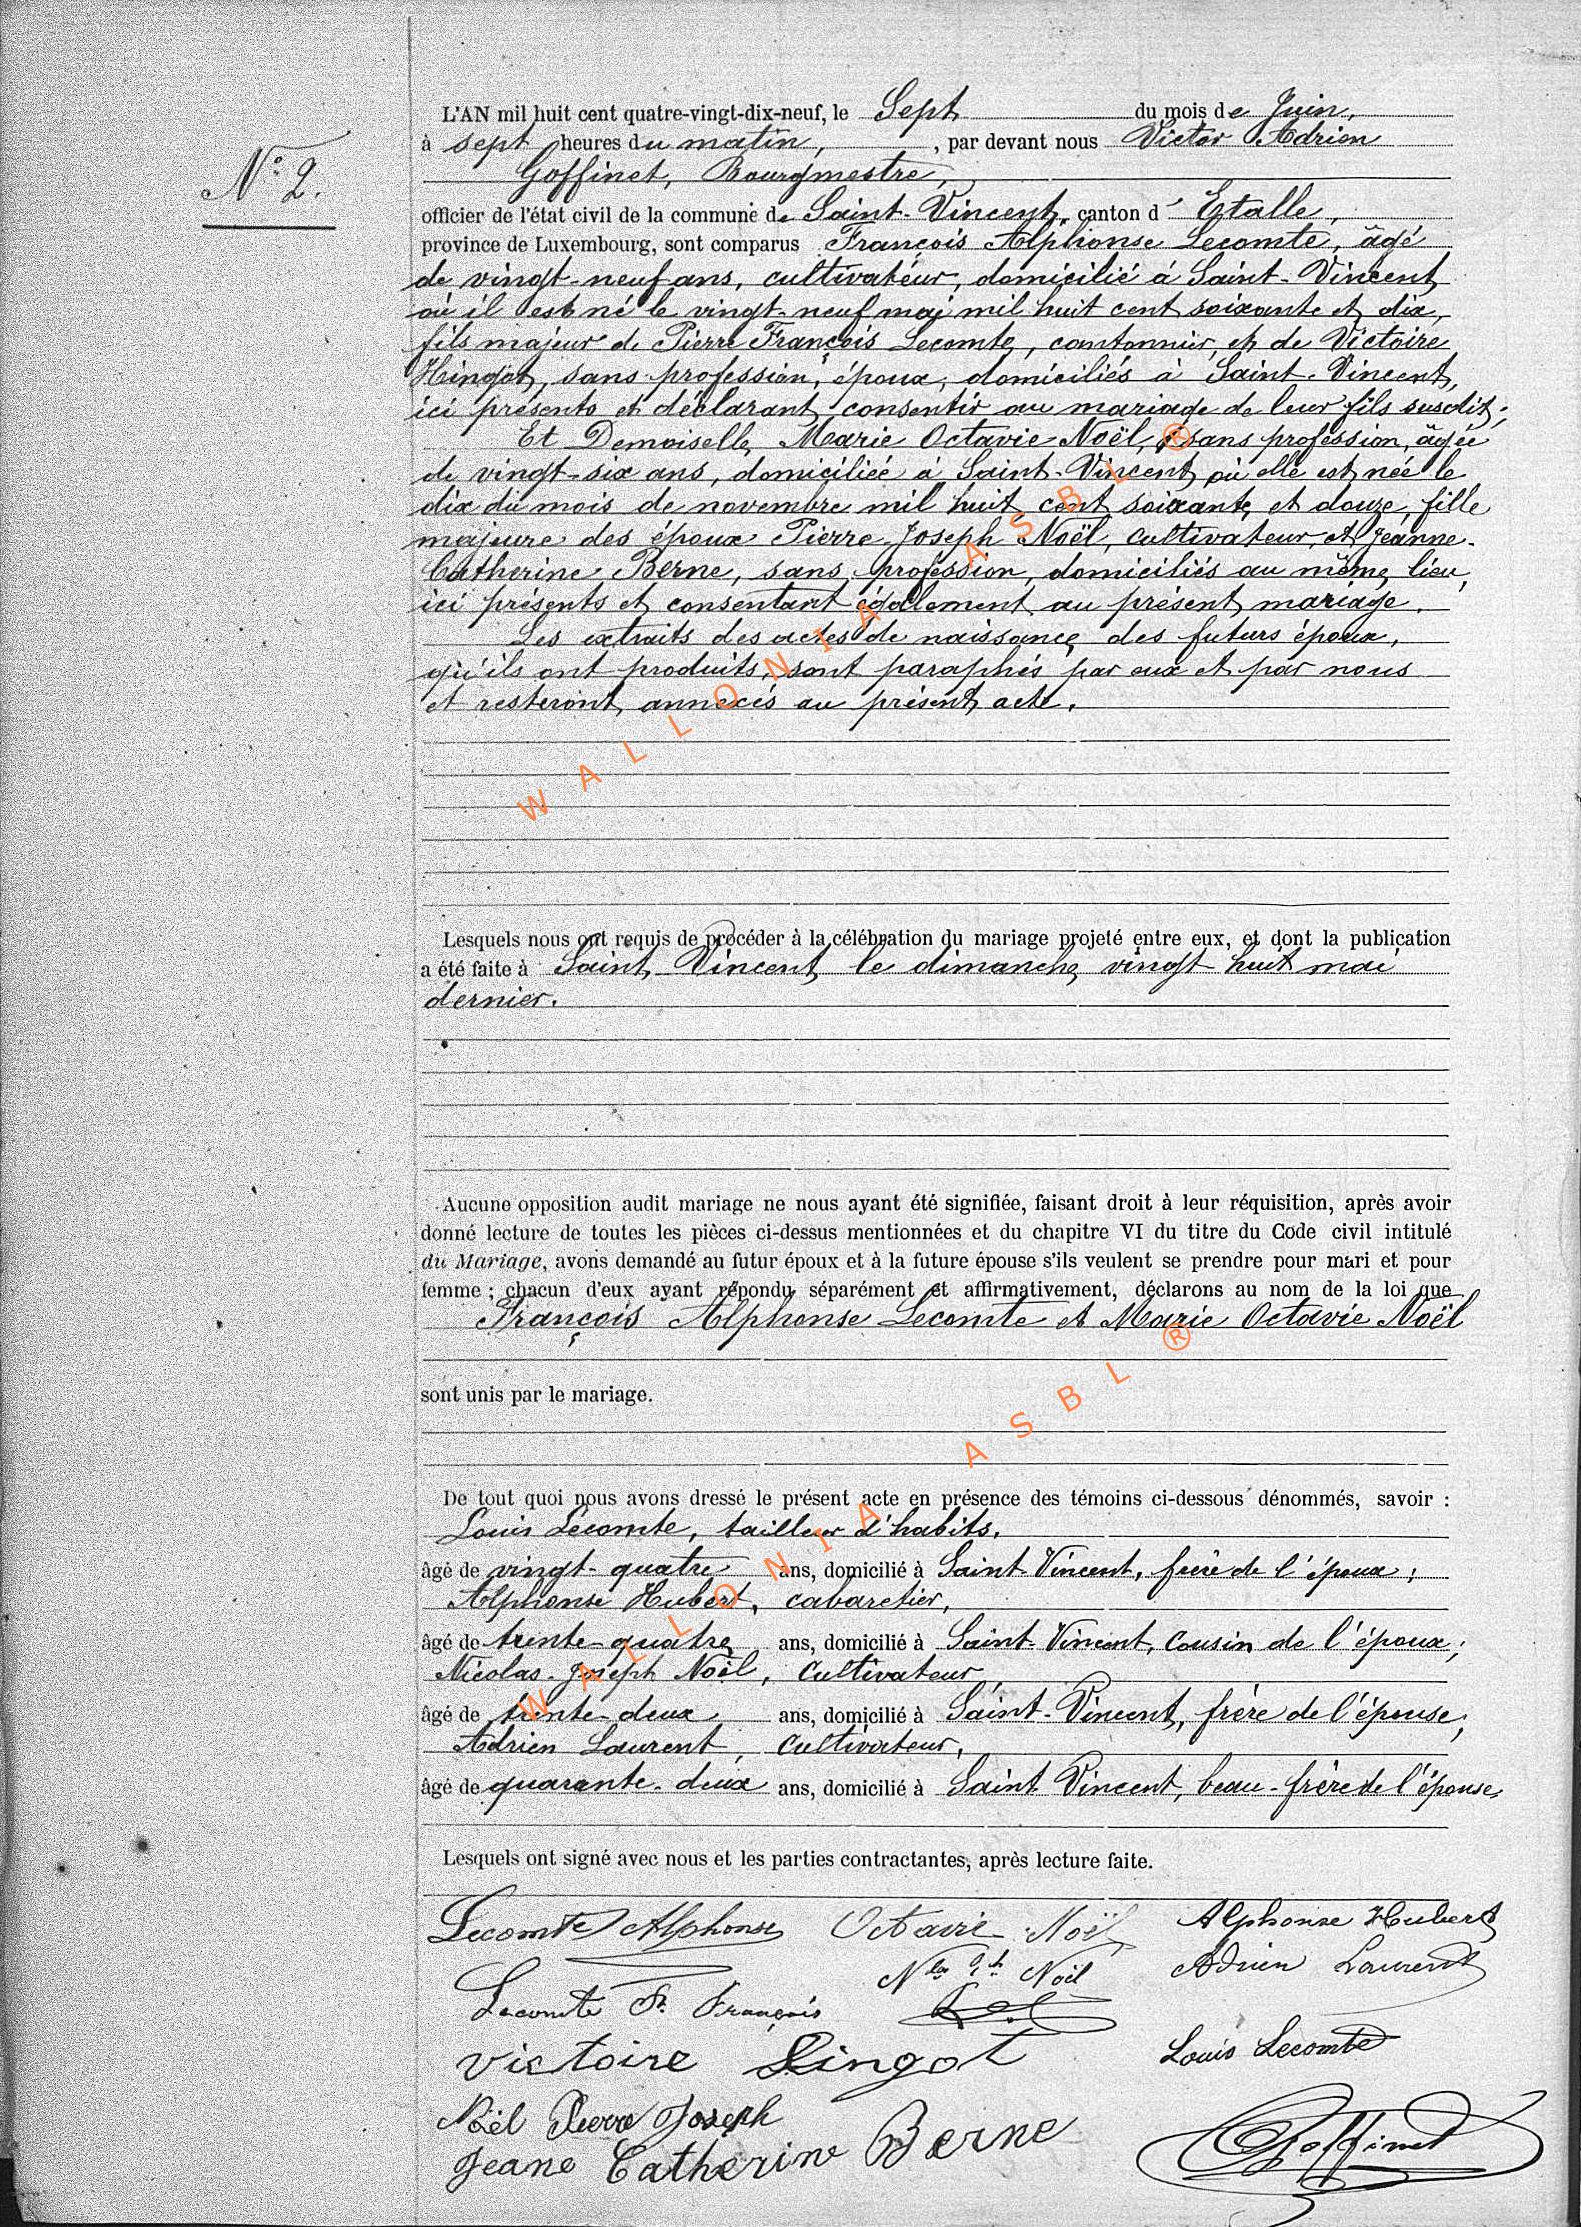 L'AN mil huit cent quatre-vingt-dix-neuf, le Sept du mois de Juin,
à sept heures du matin, , par devant nous Victor Adrien
N° 2.
Goffinet, Bourgmestre,
officier de l'état civil de la commune de Saint-Vincent, canton d'Etalle,
province de Luxembourg, sont comparus François Alphonse Lecomte, âgé
de vingt-neuf ans, cultivateur, domicilié à Saint-Vincent
où il est né le vingt-neuf mai mil huit cent soixante et dix,
fils majeur de Pierre François Lecomte, cantonnier, et de Victoire
Hingot, sans profession, époux, domiciliés à Saint-Vincent,
ici présents et déclarant consentir au mariage de leur fils susdit;
Et Demoiselle Marie Octavie Noël, sans profession, âgée
de vingt-six ans, domiciliée à Saint-Vincent où elle est née le
dix du mois de novembre mil huit cent soixante et douze, fille
majeure des époux Pierre-Joseph Noël, cultivateur, et Jeanne-
Catherine Berne, sans profession, domiciliés au même lieu,
ici présents et consentant également au présent mariage.
Les extraits des actes de naissance des futurs époux,
qu'ils ont produits, sont paraphés par eux et par nous
et resteront annexés au présent acte.
WALLONIA ASBL ®
Lesquels nous ont requis de procéder à la célébration du mariage projeté entre eux, et dont la publication
a été faite à Saint-Vincent le dimanche vingt huit mai
dernier.
Aucune opposition audit mariage ne nous ayant été signifiée, faisant droit à leur réquisition, après avoir
donné lecture de toutes les pièces ci-dessus mentionnées et du chapitre VI du titre du Code civil intitulé
du Mariage, avons demandé au futur époux et à la future épouse s'ils veulent se prendre pour mari et pour
femme ; chacun d'eux ayant répondu séparément et affirmativement, déclarons au nom de la loi que
François Alphonse Lecomte et Marie Octavie Noël
sont unis par le mariage.
De tout quoi nous avons dressé le présent acte en présence des témoins ci-dessous dénommés, savoir :
Louis Lecomte, tailleur d'habits,
âgé de vingt-quatre ans, domicilié à Saint-Vincent, frère de l'époux;
Alphonse Hubert, cabaretier,
âgé de trente-quatre ans, domicilié à Saint-Vincent, cousin de l'époux;
Nicolas-Joseph Noël, cultivateur
âgé de trente-deux ans, domicilié à Saint-Vincent, frère de l'épouse;
Adrien Laurent, cultivateur,
âgé de quarante-deux ans, domicilié à Saint-Vincent, beau-frère de l'épouse,
WALLONIA ASBL ®
Lesquels ont signé avec nous et les parties contractantes, après lecture faite.
Lecomte Alphonse Octavie Noël Alphonse Hubert
Nlas Jh Noël Adrien Laurent
Lecomte P. François
Victoire Hingot Louis Lecomte
Noël Pierre Joseph
Jeane Catherine Berne Goffinet